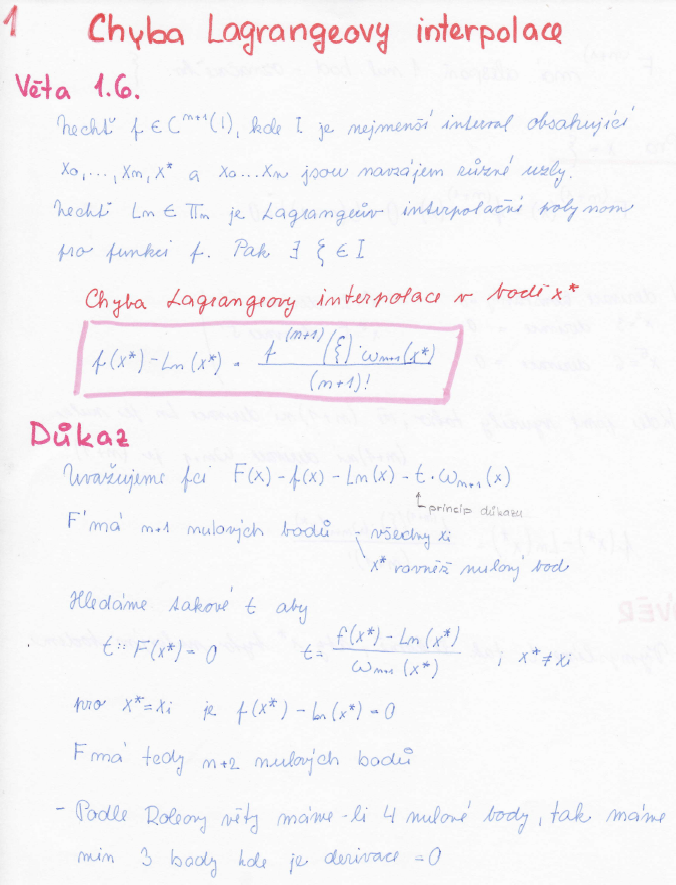 1 Chyba Lagrangeovy interpolace
Věta 1.6.
Nechť f ∈ C^{n+1}(I), kde I je nejmenší interval obsahující
x₀,...,xₙ, x* a x₀...xₙ jsou navzájem různé uzly.
Nechť Lₙ ∈ Πₙ je Lagrangeův interpolační polynom
pro funkci f. Pak ∃ ξ ∈ I
Chyba Lagrangeovy interpolace v bodě x*
f(x*) - Lₙ(x*) = f^{(n+1)}(ξ)·ω_{n+1}(x*) / (n+1)!
Důkaz
Uvažujeme fci F(x) = f(x) - Lₙ(x) - t·ω_{n+1}(x)
princip důkazu
F má n+1 nulových bodů - všechny xᵢ
x* rovněž nulový bod
Hledáme takové t aby
t: F(x*) = 0 t = f(x*) - Lₙ(x*) / ω_{n+1}(x*) ; x* ≠ xᵢ
pro x* = xᵢ je f(x*) - Lₙ(x*) = 0
F má tedy n+2 nulových bodů
- Podle Roleovy věty máme-li 4 nulové body, tak máme
min 3 body kde je derivace = 0